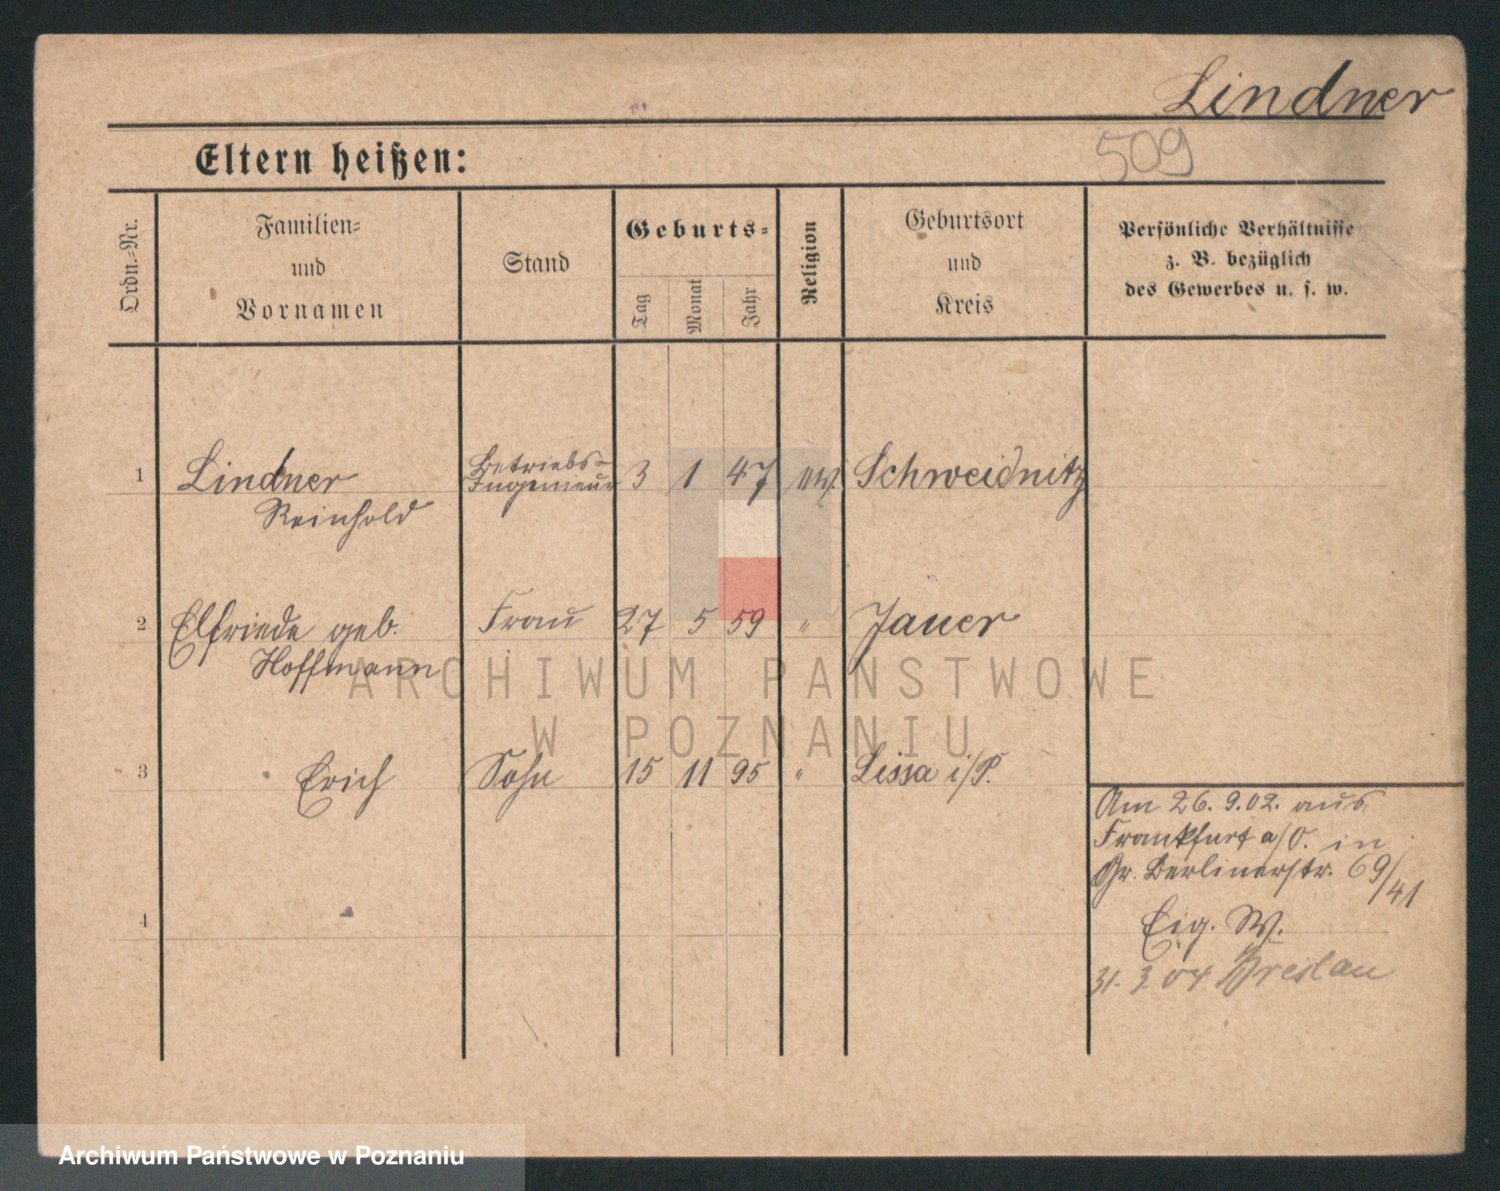 Lindner
509
Eltern heißen:
Ordn.-Nr.
Familien-
und
Vornamen
Stand
Geburts-
Tag
Monat
Jahr
Religion
Geburtsort
und
Kreis
Persönliche Verhältnisse
z. B. bezüglich
des Gewerbes u. s. w.
1 Lindner Betriebs- 3 1 47 ev. Schweidnitz
Reinhold Ingenieur
2 Elfriede geb. Frau 27 5 59 " Jauer
Hoffmann
3 Erich Sohn 15 11 95 " Lissa i/P.
Am 26.9.02. aus
Frankfurt a/O. in
Gr. Berlinerstr. 69/41
4
Eig. W.
31.3.04 Breslau
ARCHIWUM PAŃSTWOWE
W POZNANIU
Archiwum Państwowe w Poznaniu